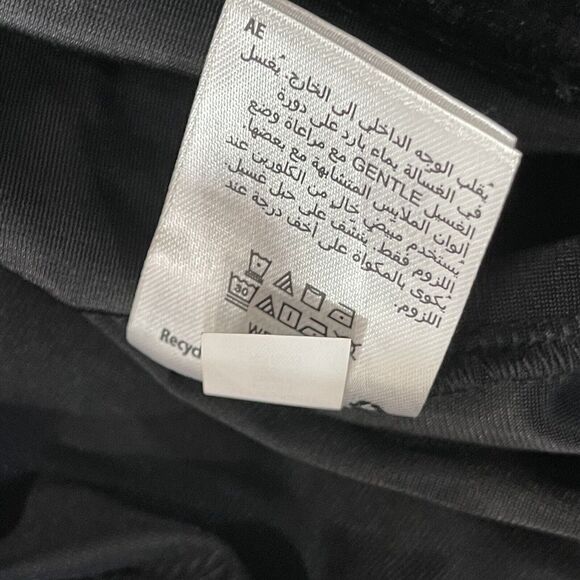 AE
يُقلب الوجه الداخلي إلى الخارج. يُغسل
في الغسالة بماء بارد على دورة
الغسيل GENTLE مع مراعاة وضع
ألوان الملابس المتشابهة مع بعضها.
يستخدم مبيض خالٍ من الكلورين عند
اللزوم فقط. ينشف على حبل غسيل.
يُكوى بالمكواة على أخف درجة عند
اللزوم.
30
Recyc